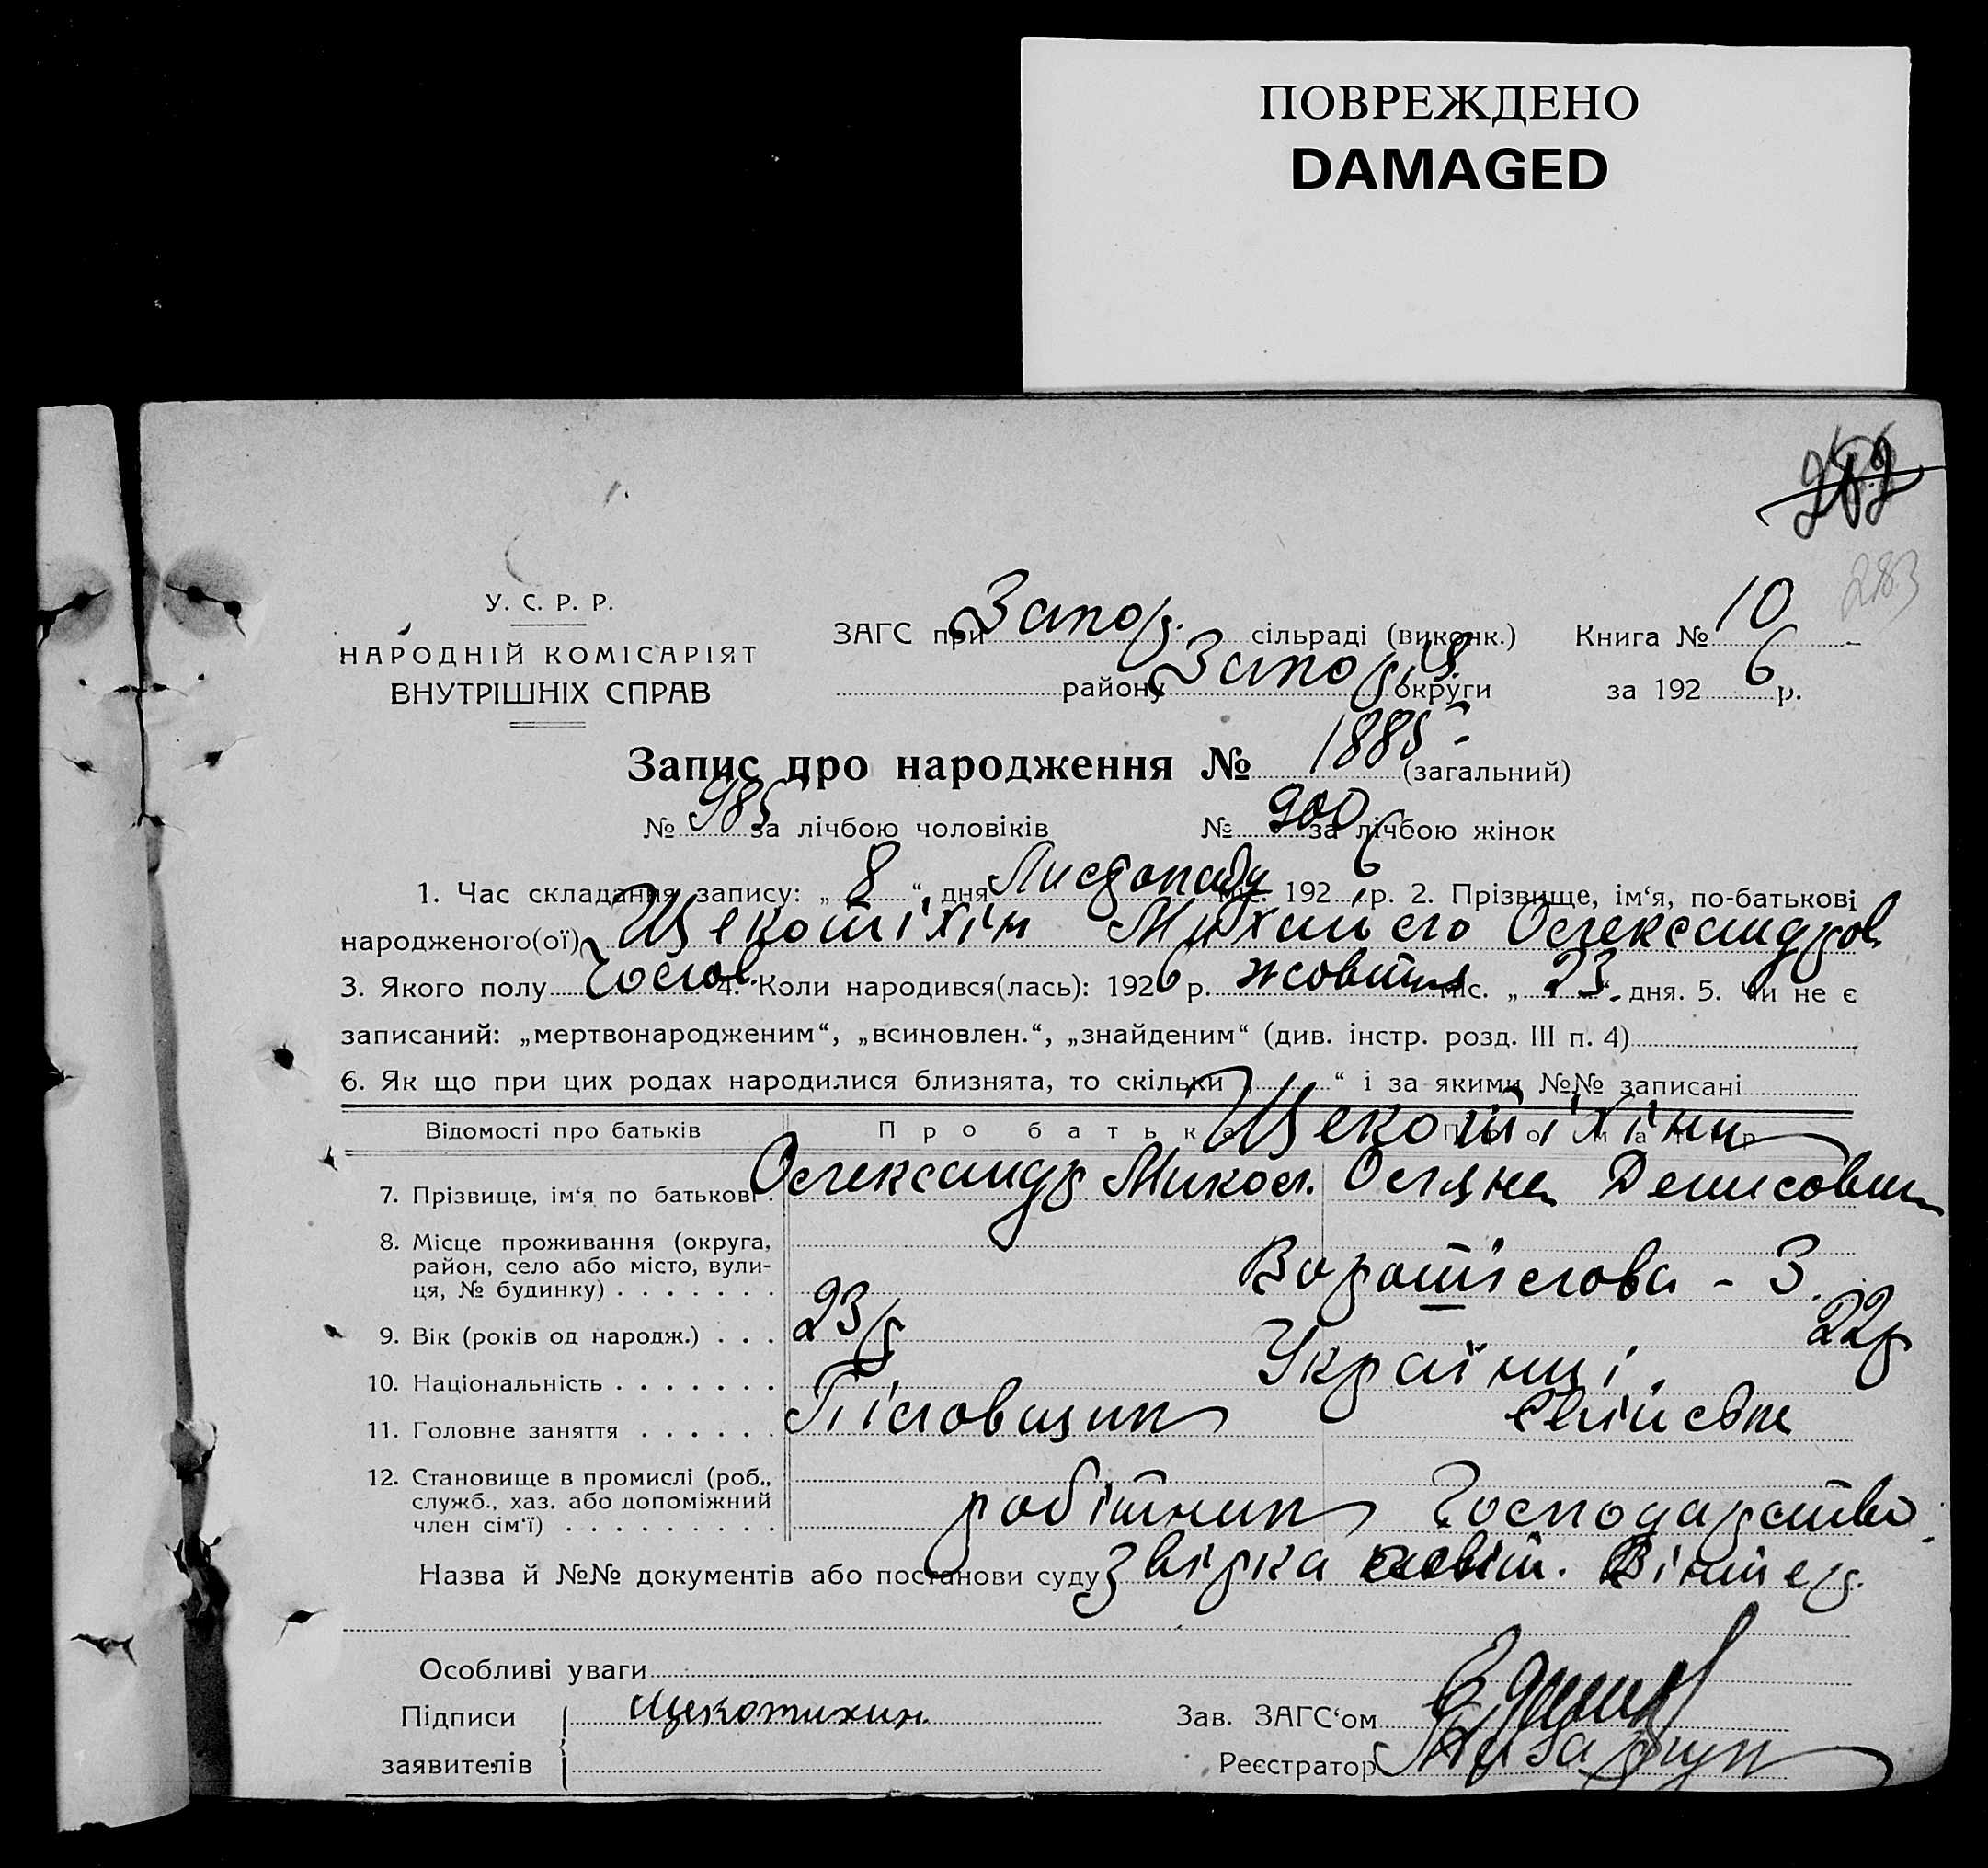 ПОВРЕЖДЕНО
DAMAGED
283
У. С. Р. Р.
НАРОДНІЙ КОМІСАРІЯТ
ВНУТРІШНІХ СПРАВ
ЗАГС при Запор. сільраді (виконк.) Книга № 10
району Запор. округи за 1926 р.
Запис про народження № 1885 (загальний)
№ 985 за лічбою чоловіків № 900 за лічбою жінок
1. Час складання запису: „8“ дня Листопада міс. 1926 р. 2. Прізвище, ім‘я, по-батькові
народженого(ої) Щекотіхін Михайло Олександров
3. Якого полу Чолов. 4. Коли народився(лась): 1926 р. жовтня міс. „23“ дня. 5. Чи не є
записаний: „мертвонародженим“, „всиновлен.“, „знайденим“ (див. інстр. розд. III п. 4)
6. Як що при цих родах народилися близнята, то скільки „ “ і за якими №№ записані
Відомості про батьків Про батька Про матір
Щекотіхіни
7. Прізвище, ім‘я по батькові Олександр Микол. Оляна Денисовна
8. Місце проживання (округа,
район, село або місто, вули-
ця, № будинку) Ворошілова - 3.
9. Вік (років од народж.) 23 р 22 р
10. Національність Українці.
11. Головне заняття
12. Становище в промислі (роб.,
служб., хаз. або допоміжний
член сім‘ї) робітник господарство
Назва й №№ документів або постанови суду звірка
Особливі уваги
Підписи Щекотихин
заявителів
Зав. ЗАГС‘ом
Реєстратор